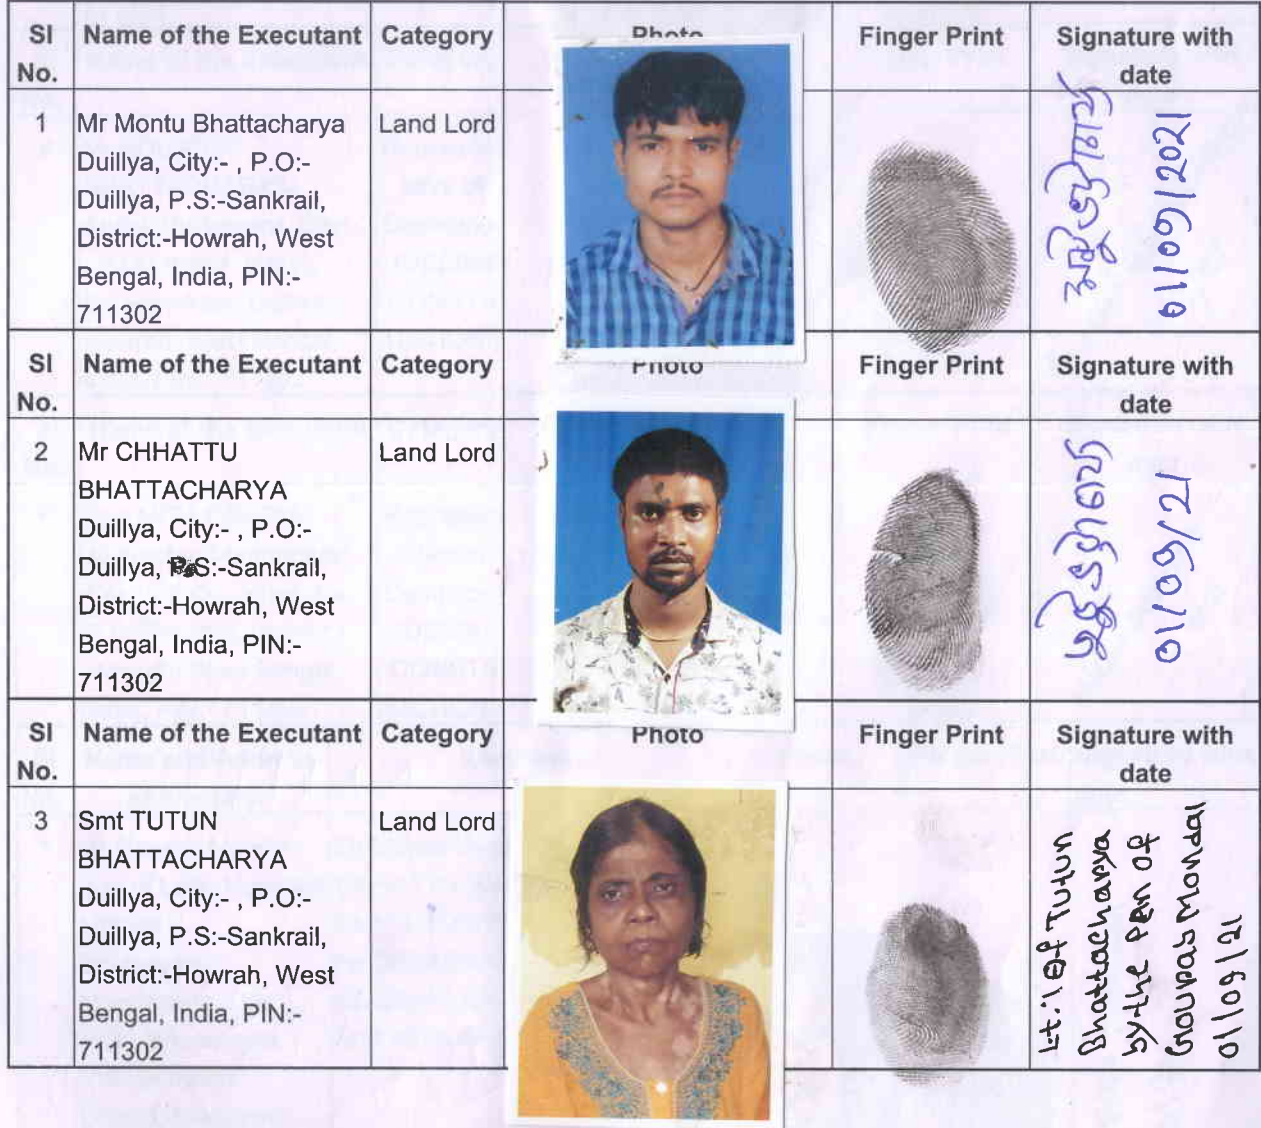 Sl No. Name of the Executant Category Photo Finger Print Signature with date
1 Mr Montu Bhattacharya Land Lord
Duillya, City:- , P.O:-
Duillya, P.S:-Sankrail,
District:-Howrah, West
Bengal, India, PIN:-
711302
01/09/2021
Sl No. Name of the Executant Category Photo Finger Print Signature with date
2 Mr CHHATTU Land Lord
BHATTACHARYA
Duillya, City:- , P.O:-
Duillya, P.S:-Sankrail,
District:-Howrah, West
Bengal, India, PIN:-
711302
01/09/21
Sl No. Name of the Executant Category Photo Finger Print Signature with date
3 Smt TUTUN Land Lord
BHATTACHARYA
Duillya, City:- , P.O:-
Duillya, P.S:-Sankrail,
District:-Howrah, West
Bengal, India, PIN:-
711302
of Tutun
Bhattacharya
by the Pen of
Mondal
01/09/21